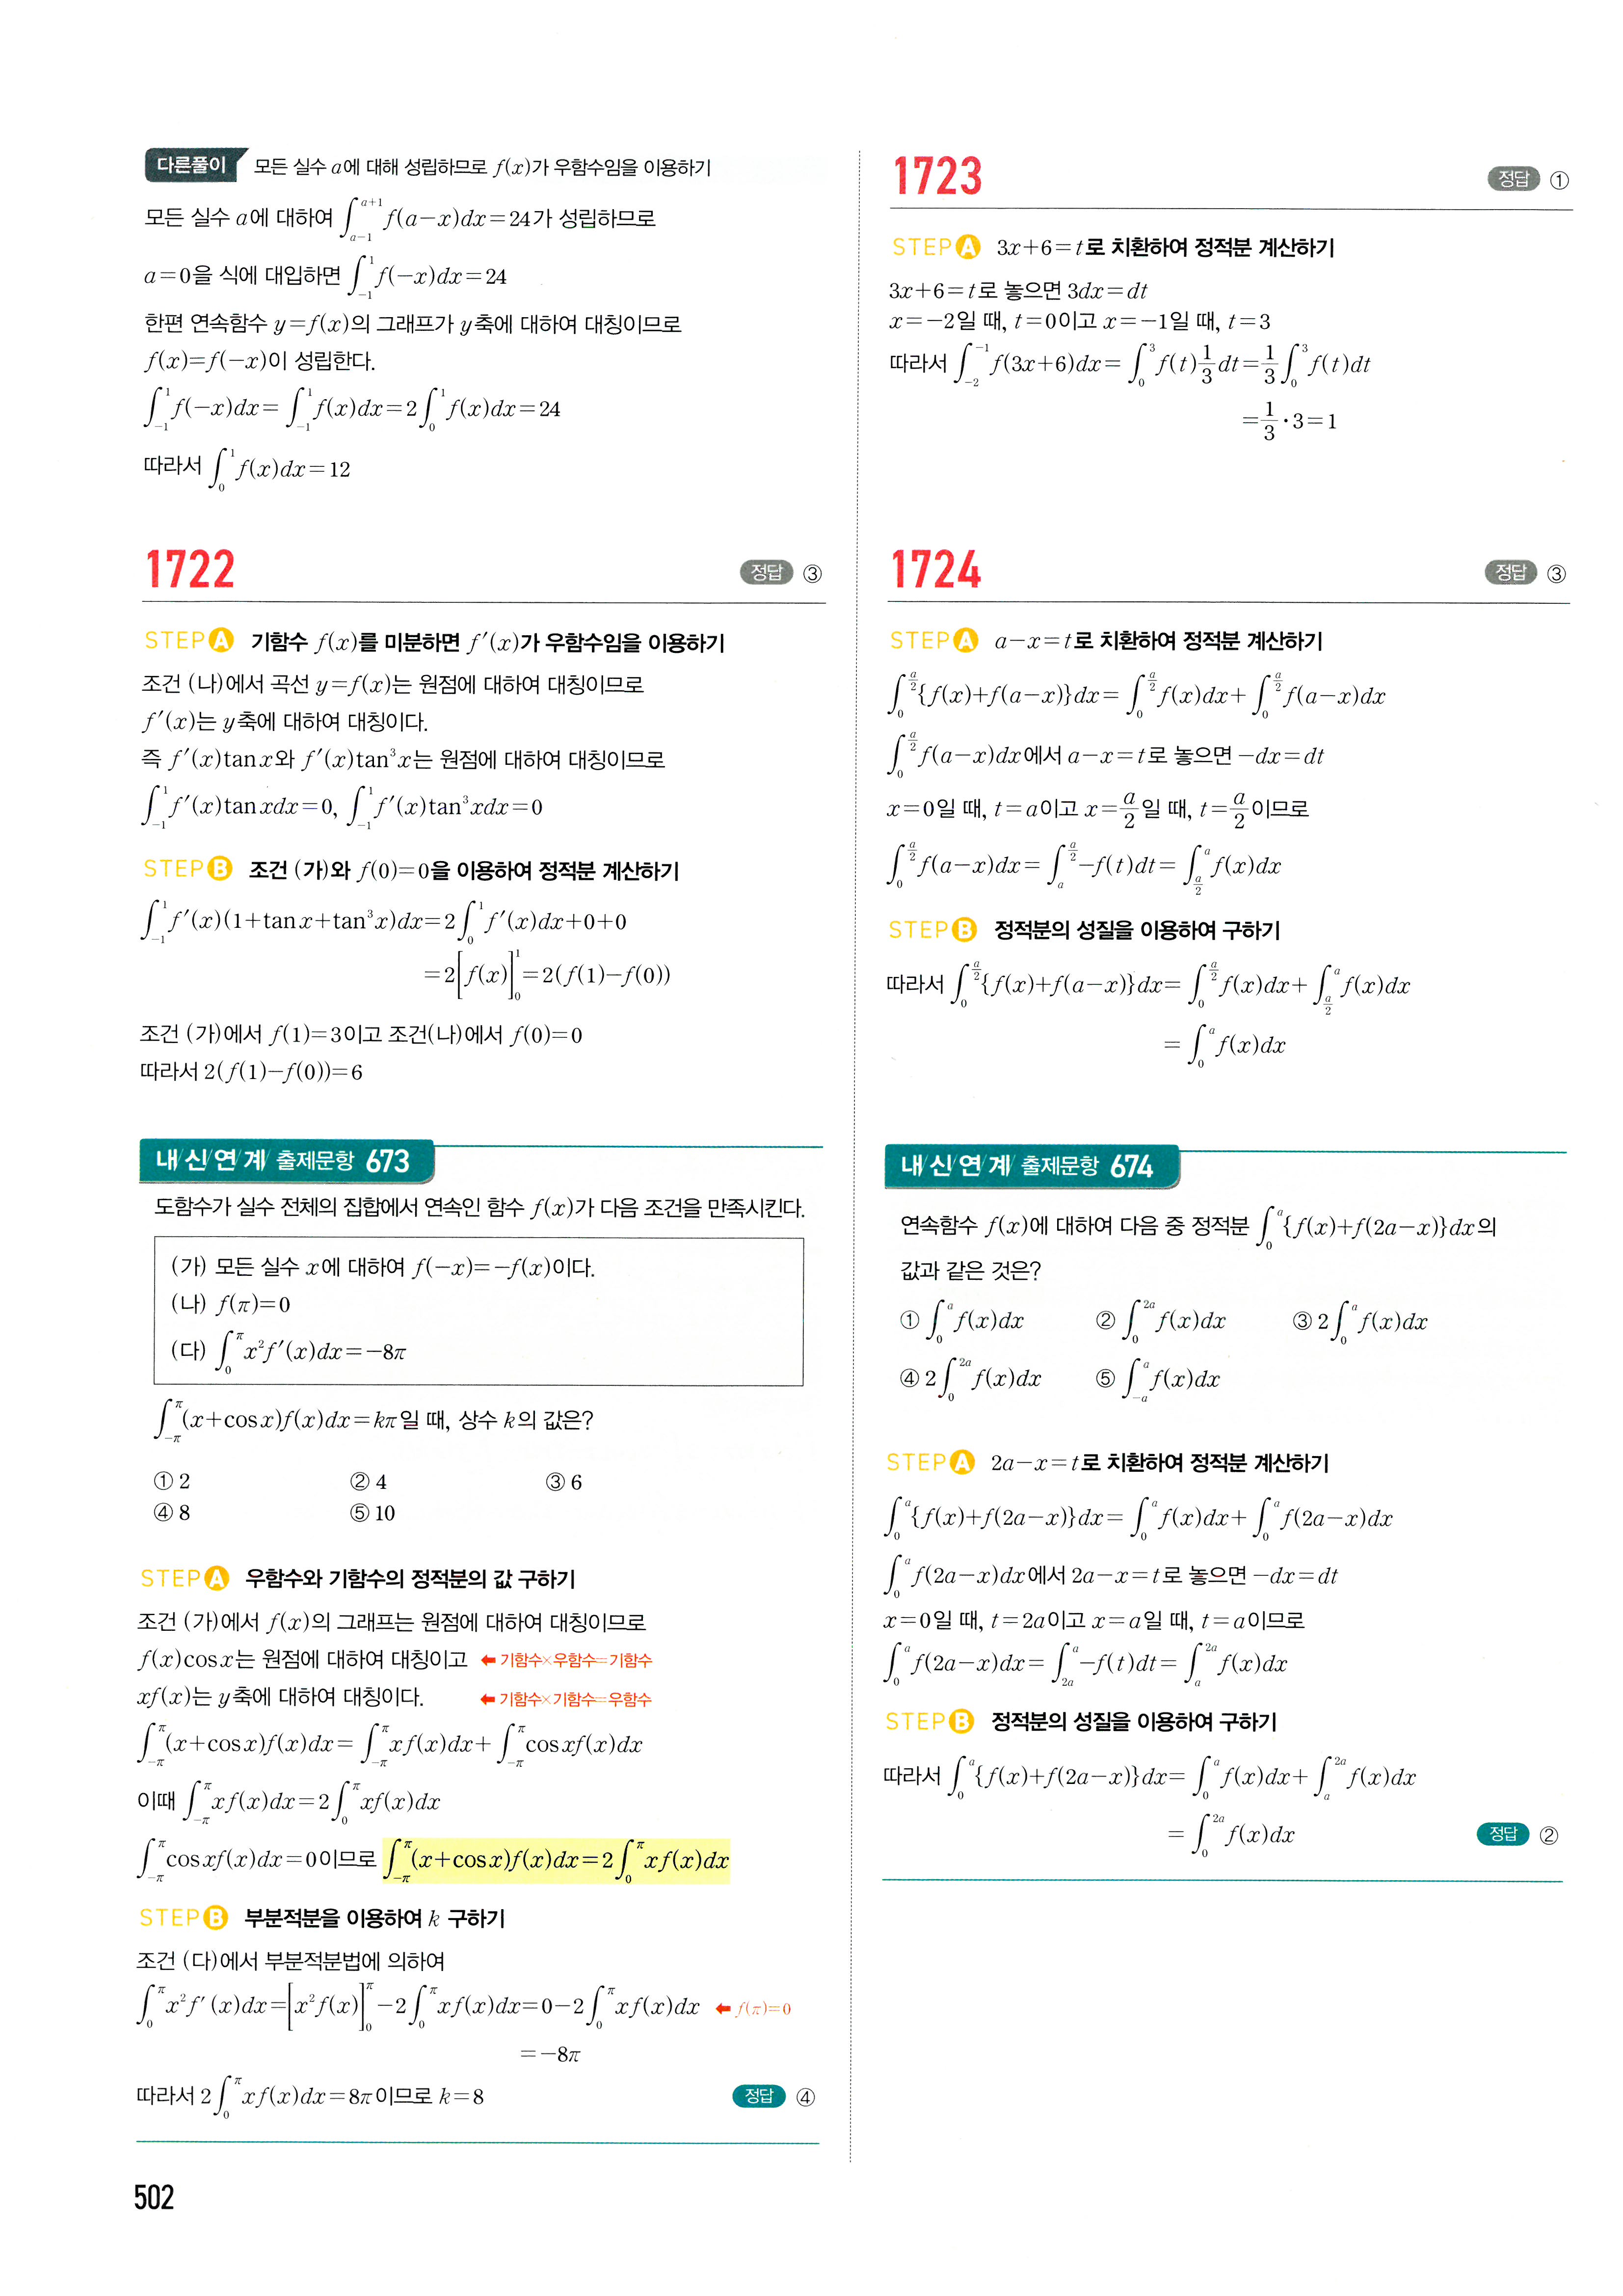 다른풀이 모든 실수 a에 대해 성립하므로 f(x)가 우함수임을 이용하기
모든 실수 a에 대하여 ∫_{a-1}^{a+1} f(a-x)dx=24가 성립하므로
a=0을 식에 대입하면 ∫_{-1}^{1} f(-x)dx=24
한편 연속함수 y=f(x)의 그래프가 y축에 대하여 대칭이므로
f(x)=f(-x)이 성립한다.
∫_{-1}^{1} f(-x)dx=∫_{-1}^{1} f(x)dx=2∫_{0}^{1} f(x)dx=24
따라서 ∫_{0}^{1} f(x)dx=12
1722 정답 ③
STEP A 기함수 f(x)를 미분하면 f′(x)가 우함수임을 이용하기
조건 (나)에서 곡선 y=f(x)는 원점에 대하여 대칭이므로
f′(x)는 y축에 대하여 대칭이다.
즉 f′(x)tanx와 f′(x)tan³x는 원점에 대하여 대칭이므로
∫_{-1}^{1} f′(x)tanxdx=0, ∫_{-1}^{1} f′(x)tan³xdx=0
STEP B 조건 (가)와 f(0)=0을 이용하여 정적분 계산하기
∫_{-1}^{1} f′(x)(1+tanx+tan³x)dx=2∫_{0}^{1} f′(x)dx+0+0
=2[f(x)]_{0}^{1}=2(f(1)-f(0))
조건 (가)에서 f(1)=3이고 조건(나)에서 f(0)=0
따라서 2(f(1)-f(0))=6
내/신/연/계/ 출제문항 673
도함수가 실수 전체의 집합에서 연속인 함수 f(x)가 다음 조건을 만족시킨다.
(가) 모든 실수 x에 대하여 f(-x)=-f(x)이다.
(나) f(π)=0
(다) ∫_{0}^{π} x²f′(x)dx=-8π
∫_{-π}^{π} (x+cosx)f(x)dx=kπ일 때, 상수 k의 값은?
① 2 ② 4 ③ 6
④ 8 ⑤ 10
STEP A 우함수와 기함수의 정적분의 값 구하기
조건 (가)에서 f(x)의 그래프는 원점에 대하여 대칭이므로
f(x)cosx는 원점에 대하여 대칭이고 ⬅ 기함수×우함수=기함수
xf(x)는 y축에 대하여 대칭이다. ⬅ 기함수×기함수=우함수
∫_{-π}^{π} (x+cosx)f(x)dx=∫_{-π}^{π} xf(x)dx+∫_{-π}^{π} cosxf(x)dx
이때 ∫_{-π}^{π} xf(x)dx=2∫_{0}^{π} xf(x)dx
∫_{-π}^{π} cosxf(x)dx=0이므로 ∫_{-π}^{π} (x+cosx)f(x)dx=2∫_{0}^{π} xf(x)dx
STEP B 부분적분을 이용하여 k 구하기
조건 (다)에서 부분적분법에 의하여
∫_{0}^{π} x²f′(x)dx=[x²f(x)]_{0}^{π}-2∫_{0}^{π} xf(x)dx=0-2∫_{0}^{π} xf(x)dx ⬅ f(π)=0
=-8π
따라서 2∫_{0}^{π} xf(x)dx=8π이므로 k=8 정답 ④
502
1723 정답 ①
STEP A 3x+6=t로 치환하여 정적분 계산하기
3x+6=t로 놓으면 3dx=dt
x=-2일 때, t=0이고 x=-1일 때, t=3
따라서 ∫_{-2}^{-1} f(3x+6)dx=∫_{0}^{3} f(t)1/3dt=1/3∫_{0}^{3} f(t)dt
=1/3·3=1
1724 정답 ③
STEP A a-x=t로 치환하여 정적분 계산하기
∫_{0}^{a/2} {f(x)+f(a-x)}dx=∫_{0}^{a/2} f(x)dx+∫_{0}^{a/2} f(a-x)dx
∫_{0}^{a/2} f(a-x)dx에서 a-x=t로 놓으면 -dx=dt
x=0일 때, t=a이고 x=a/2일 때, t=a/2이므로
∫_{0}^{a/2} f(a-x)dx=∫_{a}^{a/2} -f(t)dt=∫_{a/2}^{a} f(x)dx
STEP B 정적분의 성질을 이용하여 구하기
따라서 ∫_{0}^{a/2} {f(x)+f(a-x)}dx=∫_{0}^{a/2} f(x)dx+∫_{a/2}^{a} f(x)dx
=∫_{0}^{a} f(x)dx
내/신/연/계/ 출제문항 674
연속함수 f(x)에 대하여 다음 중 정적분 ∫_{0}^{a} {f(x)+f(2a-x)}dx의
값과 같은 것은?
① ∫_{0}^{a} f(x)dx ② ∫_{0}^{2a} f(x)dx ③ 2∫_{0}^{a} f(x)dx
④ 2∫_{0}^{2a} f(x)dx ⑤ ∫_{-a}^{a} f(x)dx
STEP A 2a-x=t로 치환하여 정적분 계산하기
∫_{0}^{a} {f(x)+f(2a-x)}dx=∫_{0}^{a} f(x)dx+∫_{0}^{a} f(2a-x)dx
∫_{0}^{a} f(2a-x)dx에서 2a-x=t로 놓으면 -dx=dt
x=0일 때, t=2a이고 x=a일 때, t=a이므로
∫_{0}^{a} f(2a-x)dx=∫_{2a}^{a} -f(t)dt=∫_{a}^{2a} f(x)dx
STEP B 정적분의 성질을 이용하여 구하기
따라서 ∫_{0}^{a} {f(x)+f(2a-x)}dx=∫_{0}^{a} f(x)dx+∫_{a}^{2a} f(x)dx
=∫_{0}^{2a} f(x)dx 정답 ②